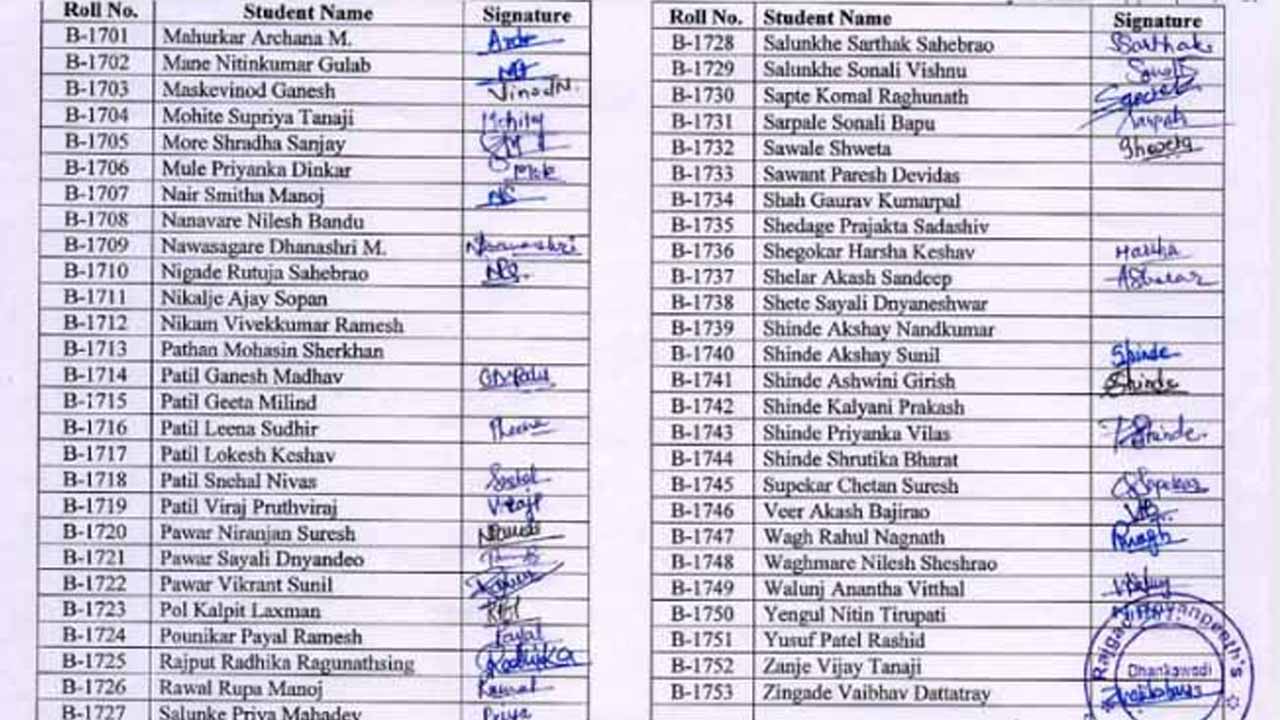 Roll No. Student Name Signature
B-1701 Mahurkar Archana M.
B-1702 Mane Nitinkumar Gulab
B-1703 Maskevinod Ganesh VinodN.
B-1704 Mohite Supriya Tanaji
B-1705 More Shradha Sanjay
B-1706 Mule Priyanka Dinkar
B-1707 Nair Smitha Manoj NS
B-1708 Nanavare Nilesh Bandu
B-1709 Nawasagare Dhanashri M.
B-1710 Nigade Rutuja Sahebrao
B-1711 Nikalje Ajay Sopan
B-1712 Nikam Vivekkumar Ramesh
B-1713 Pathan Mohasin Sherkhan
B-1714 Patil Ganesh Madhav
B-1715 Patil Geeta Milind
B-1716 Patil Leena Sudhir
B-1717 Patil Lokesh Keshav
B-1718 Patil Snehal Nivas
B-1719 Patil Viraj Pruthviraj
B-1720 Pawar Niranjan Suresh
B-1721 Pawar Sayali Dnyandeo
B-1722 Pawar Vikrant Sunil
B-1723 Pol Kalpit Laxman
B-1724 Pounikar Payal Ramesh Payal
B-1725 Rajput Radhika Ragunathsing Radhika
B-1726 Rawal Rupa Manoj Rawal
B-1727 Salunke Priya Mahadev Priya
Roll No. Student Name Signature
B-1728 Salunkhe Sarthak Sahebrao Sarthak
B-1729 Salunkhe Sonali Vishnu Sonali
B-1730 Sapte Komal Raghunath
B-1731 Sarpale Sonali Bapu
B-1732 Sawale Shweta Shweta
B-1733 Sawant Paresh Devidas
B-1734 Shah Gaurav Kumarpal
B-1735 Shedage Prajakta Sadashiv
B-1736 Shegokar Harsha Keshav Harsha
B-1737 Shelar Akash Sandeep AShelar
B-1738 Shete Sayali Dnyaneshwar
B-1739 Shinde Akshay Nandkumar
B-1740 Shinde Akshay Sunil Shinde
B-1741 Shinde Ashwini Girish Shinde
B-1742 Shinde Kalyani Prakash
B-1743 Shinde Priyanka Vilas Shinde.
B-1744 Shinde Shrutika Bharat
B-1745 Supekar Chetan Suresh
B-1746 Veer Akash Bajirao
B-1747 Wagh Rahul Nagnath
B-1748 Waghmare Nilesh Sheshrao
B-1749 Walunj Anantha Vitthal
B-1750 Yengul Nitin Tirupati
B-1751 Yusuf Patel Rashid
B-1752 Zanje Vijay Tanaji
B-1753 Zingade Vaibhav Dattatray
Dhankawadi